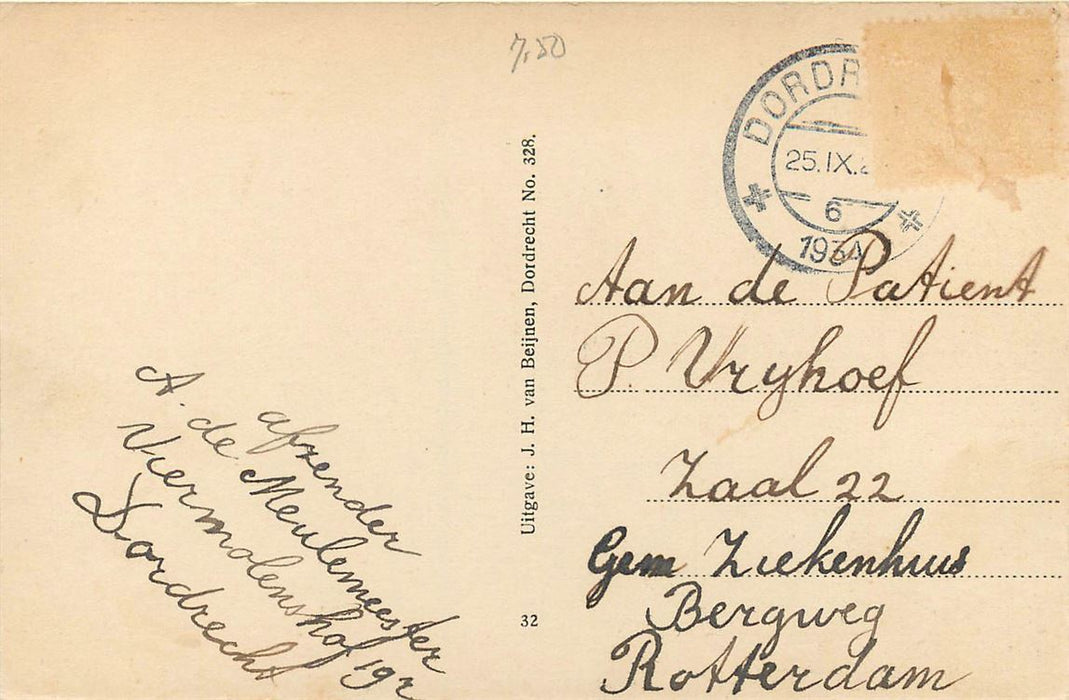 7,50
DORDR
25.IX.2
6
1934
Uitgave: J. H. van Beijnen, Dordrecht No. 328.
32
afzender
A. de Meulemeester
Viermolenshof 192
Dordrecht
Aan de Patient
P. Vryhoef
Zaal 22
Gem Ziekenhuus
Bergweg
Rotterdam